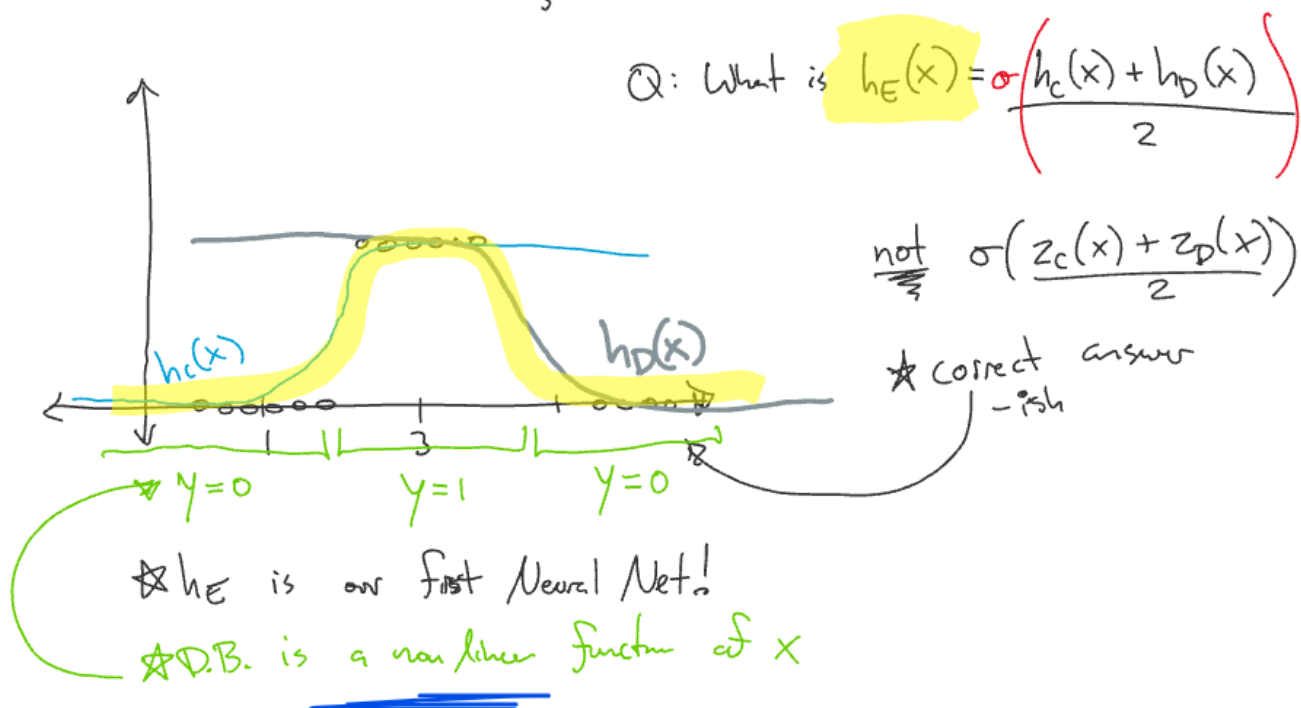 Q: What is h_E(x) = σ(h_C(x) + h_D(x) / 2)
not σ(z_C(x) + z_D(x) / 2)
☆ correct answer
-ish
h_C(x)
h_D(x)
1 3
y=0 y=1 y=0
☆ h_E is our first Neural Net!
☆ D.B. is a non linear function of x